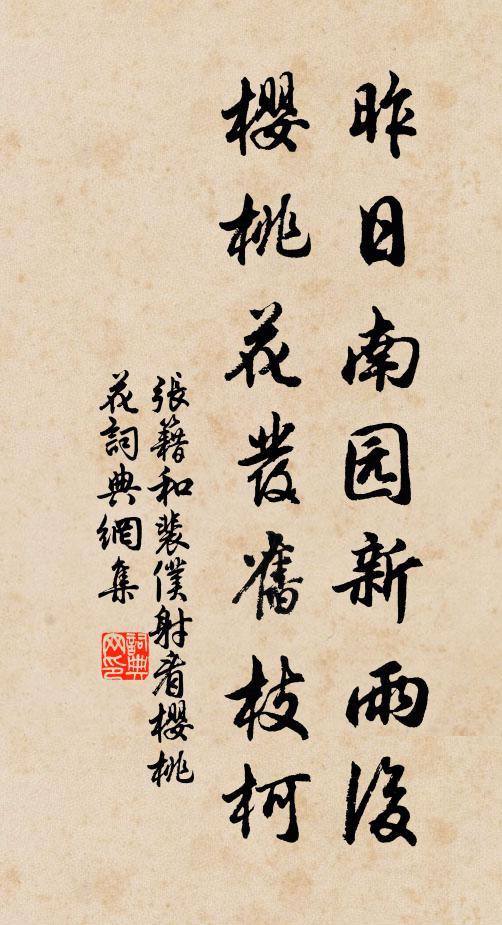 昨日南园新雨後
櫻桃花發舊枝柯
張籍和裴僕射看櫻桃
花詞典網集
詞典网印